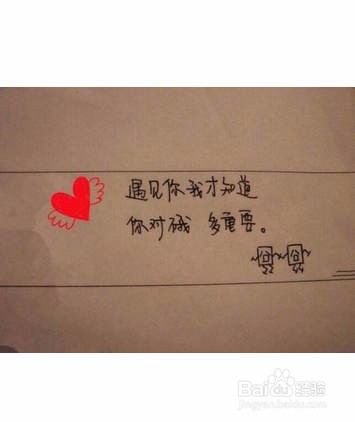 遇见你我才知道
你对硪 多重要。
Baidu经验
jingyan.baidu.com